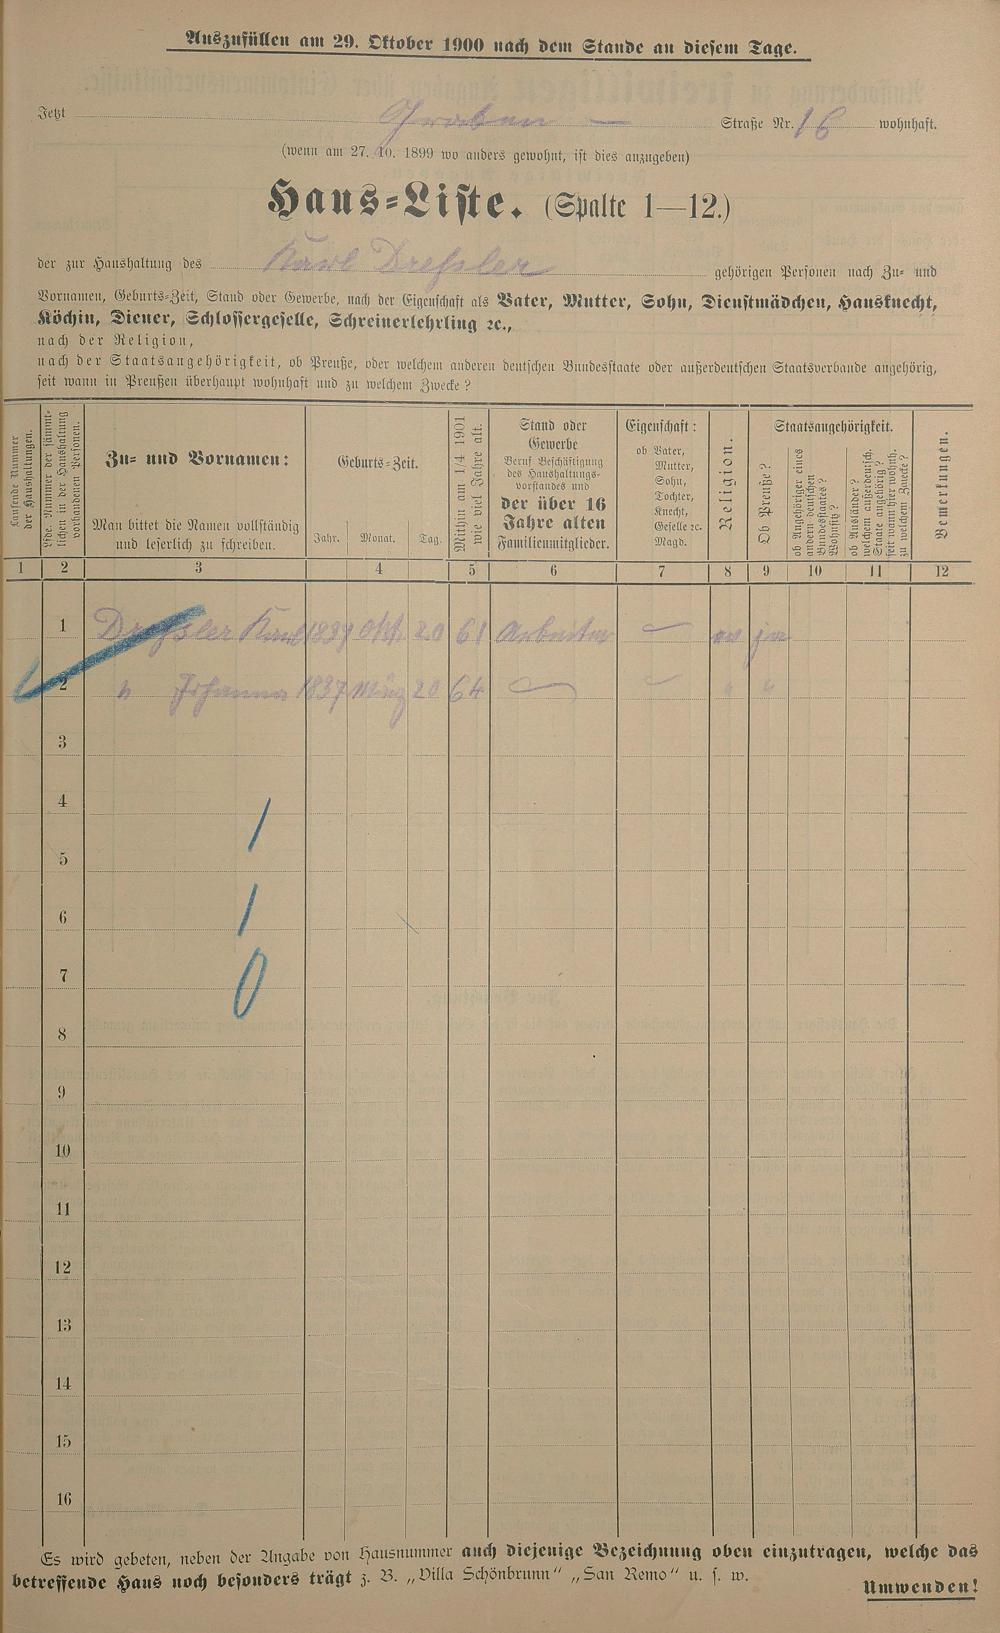 Auszufüllen am 29. Oktober 1900 nach dem Stande an diesem Tage.
Jetzt Graben — Straße Nr. 16 wohnhaft.
(wenn am 27. 10. 1899 wo anders gewohnt, ist dies anzugeben)
Haus=Liste. (Spalte 1—12.)
der zur Haushaltung des Karl Dreßler gehörigen Personen nach Zu= und
Vornamen, Geburts=Zeit, Stand oder Gewerbe, nach der Eigenschaft als Vater, Mutter, Sohn, Dienstmädchen, Hausknecht,
Köchin, Diener, Schlossergeselle, Schreinerlehrling ꝛc.,
nach der Religion,
nach der Staatsangehörigkeit, ob Preuße, oder welchem anderen deutschen Bundesstaate oder außerdeutschen Staatsverbande angehörig,
seit wann in Preußen überhaupt wohnhaft und zu welchem Zwecke?
Laufende Nummer
der Haushaltungen.
Lfde. Nummer der sämmt=
lichen in der Haushaltung
vorhandenen Personen.
Zu= und Vornamen:
Man bittet die Namen vollständig
und leserlich zu schreiben.
Geburts=Zeit.
Jahr. Monat. Tag.
Mithin am 1/4 1901
wie viel Jahre alt.
Stand oder
Gewerbe
Beruf Beschäftigung
des Haushaltungs=
vorstandes und
der über 16
Jahre alten
Familienmitglieder.
Eigenschaft:
ob Vater,
Mutter,
Sohn,
Tochter,
Knecht,
Geselle ꝛc.
Magd.
Religion.
Staatsangehörigkeit.
Ob Preuße?
ob Angehöriger eines
andern deutschen
Bundesstaates?
Wohnsitz?
ob Ausländer?
welchem außerdeutsch.
Staate angehörig?
seit wann hier wohnh.
zu welchem Zwecke?
Bemerkungen.
1 2 3 4 5 6 7 8 9 10 11 12
1 Dreßler Karl 1839 Okt. 20 61 Arbeiter — ev ja
2 " Johanna 1837 März 20 64 — — " "
3
4
1
5
6 1
7 0
8
9
10
11
12
13
14
15
16
Es wird gebeten, neben der Angabe von Hausnummer auch diejenige Bezeichnung oben einzutragen, welche das
betreffende Haus noch besonders trägt z. B. „Villa Schönbrunn" „San Remo" u. s. w.
Umwenden!